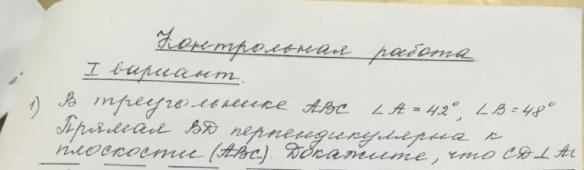 Контрольная работа
I вариант.
1) В треугольнике ABC ∠A = 42°, ∠B = 48°
Прямая BD перпендикулярна к
плоскости (ABC). Докажите, что CD ⊥ AC